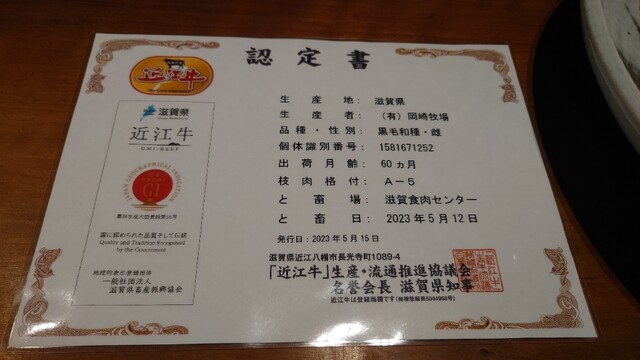 認定書
近江牛
滋賀県
近江牛
OMI-BEEF
JAPAN GEOGRAPHICAL INDICATION
GI
農林水産大臣登録第56号
国に認められた品質そして伝統
Quality and Tradition Recognized
by the Government
地理的表示登録団体
一般社団法人
滋賀県畜産振興協会
生産地: 滋賀県
生産者: (有)岡崎牧場
品種・性別: 黒毛和種・雌
個体識別番号: 1581671252
出荷月齢: 60ヵ月
枝肉格付: A-5
と畜場: 滋賀食肉センター
と畜日: 2023年5月12日
発行日:2023年5月15日
滋賀県近江八幡市長光寺町1089-4
「近江牛」生産・流通推進協議会
名誉会長 滋賀県知事
近江牛は登録商標です(商標登録第5044958号)